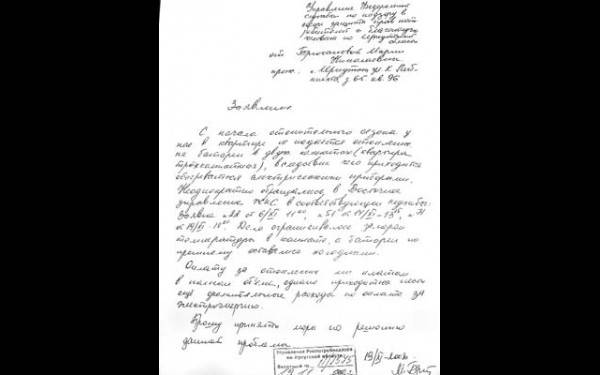 Управление Федеральной
службы по надзору в
сфере защиты прав пот
ребителей и благополучия
человека по Иркутской
области
от
Николаевны
прож. г. Иркутск ул. К. Либ-
кнехта, д 65 кв. 96
Заявление
С начала отопительного сезона у
нас в квартире не подается отопление
на батареи в двух комнатах (квартира
трехкомнатная), вследствие чего приходится
обогреваться электрическими приборами.
Неоднократно обращалась в Восточное
управление ЖКС в соответствующие службы:
Заявка
Дело ограничивалось замером
температуры в комнате, а батареи по
прежнему оставались холодными.
Оплату за отопление мы платим
в полном объеме, однако приходится нести
ещё дополнительные расходы по оплате за
электроэнергию.
Прошу принять меры по решению
данной проблемы.
Управление Роспотребнадзора
по Иркутской области
Входящий №